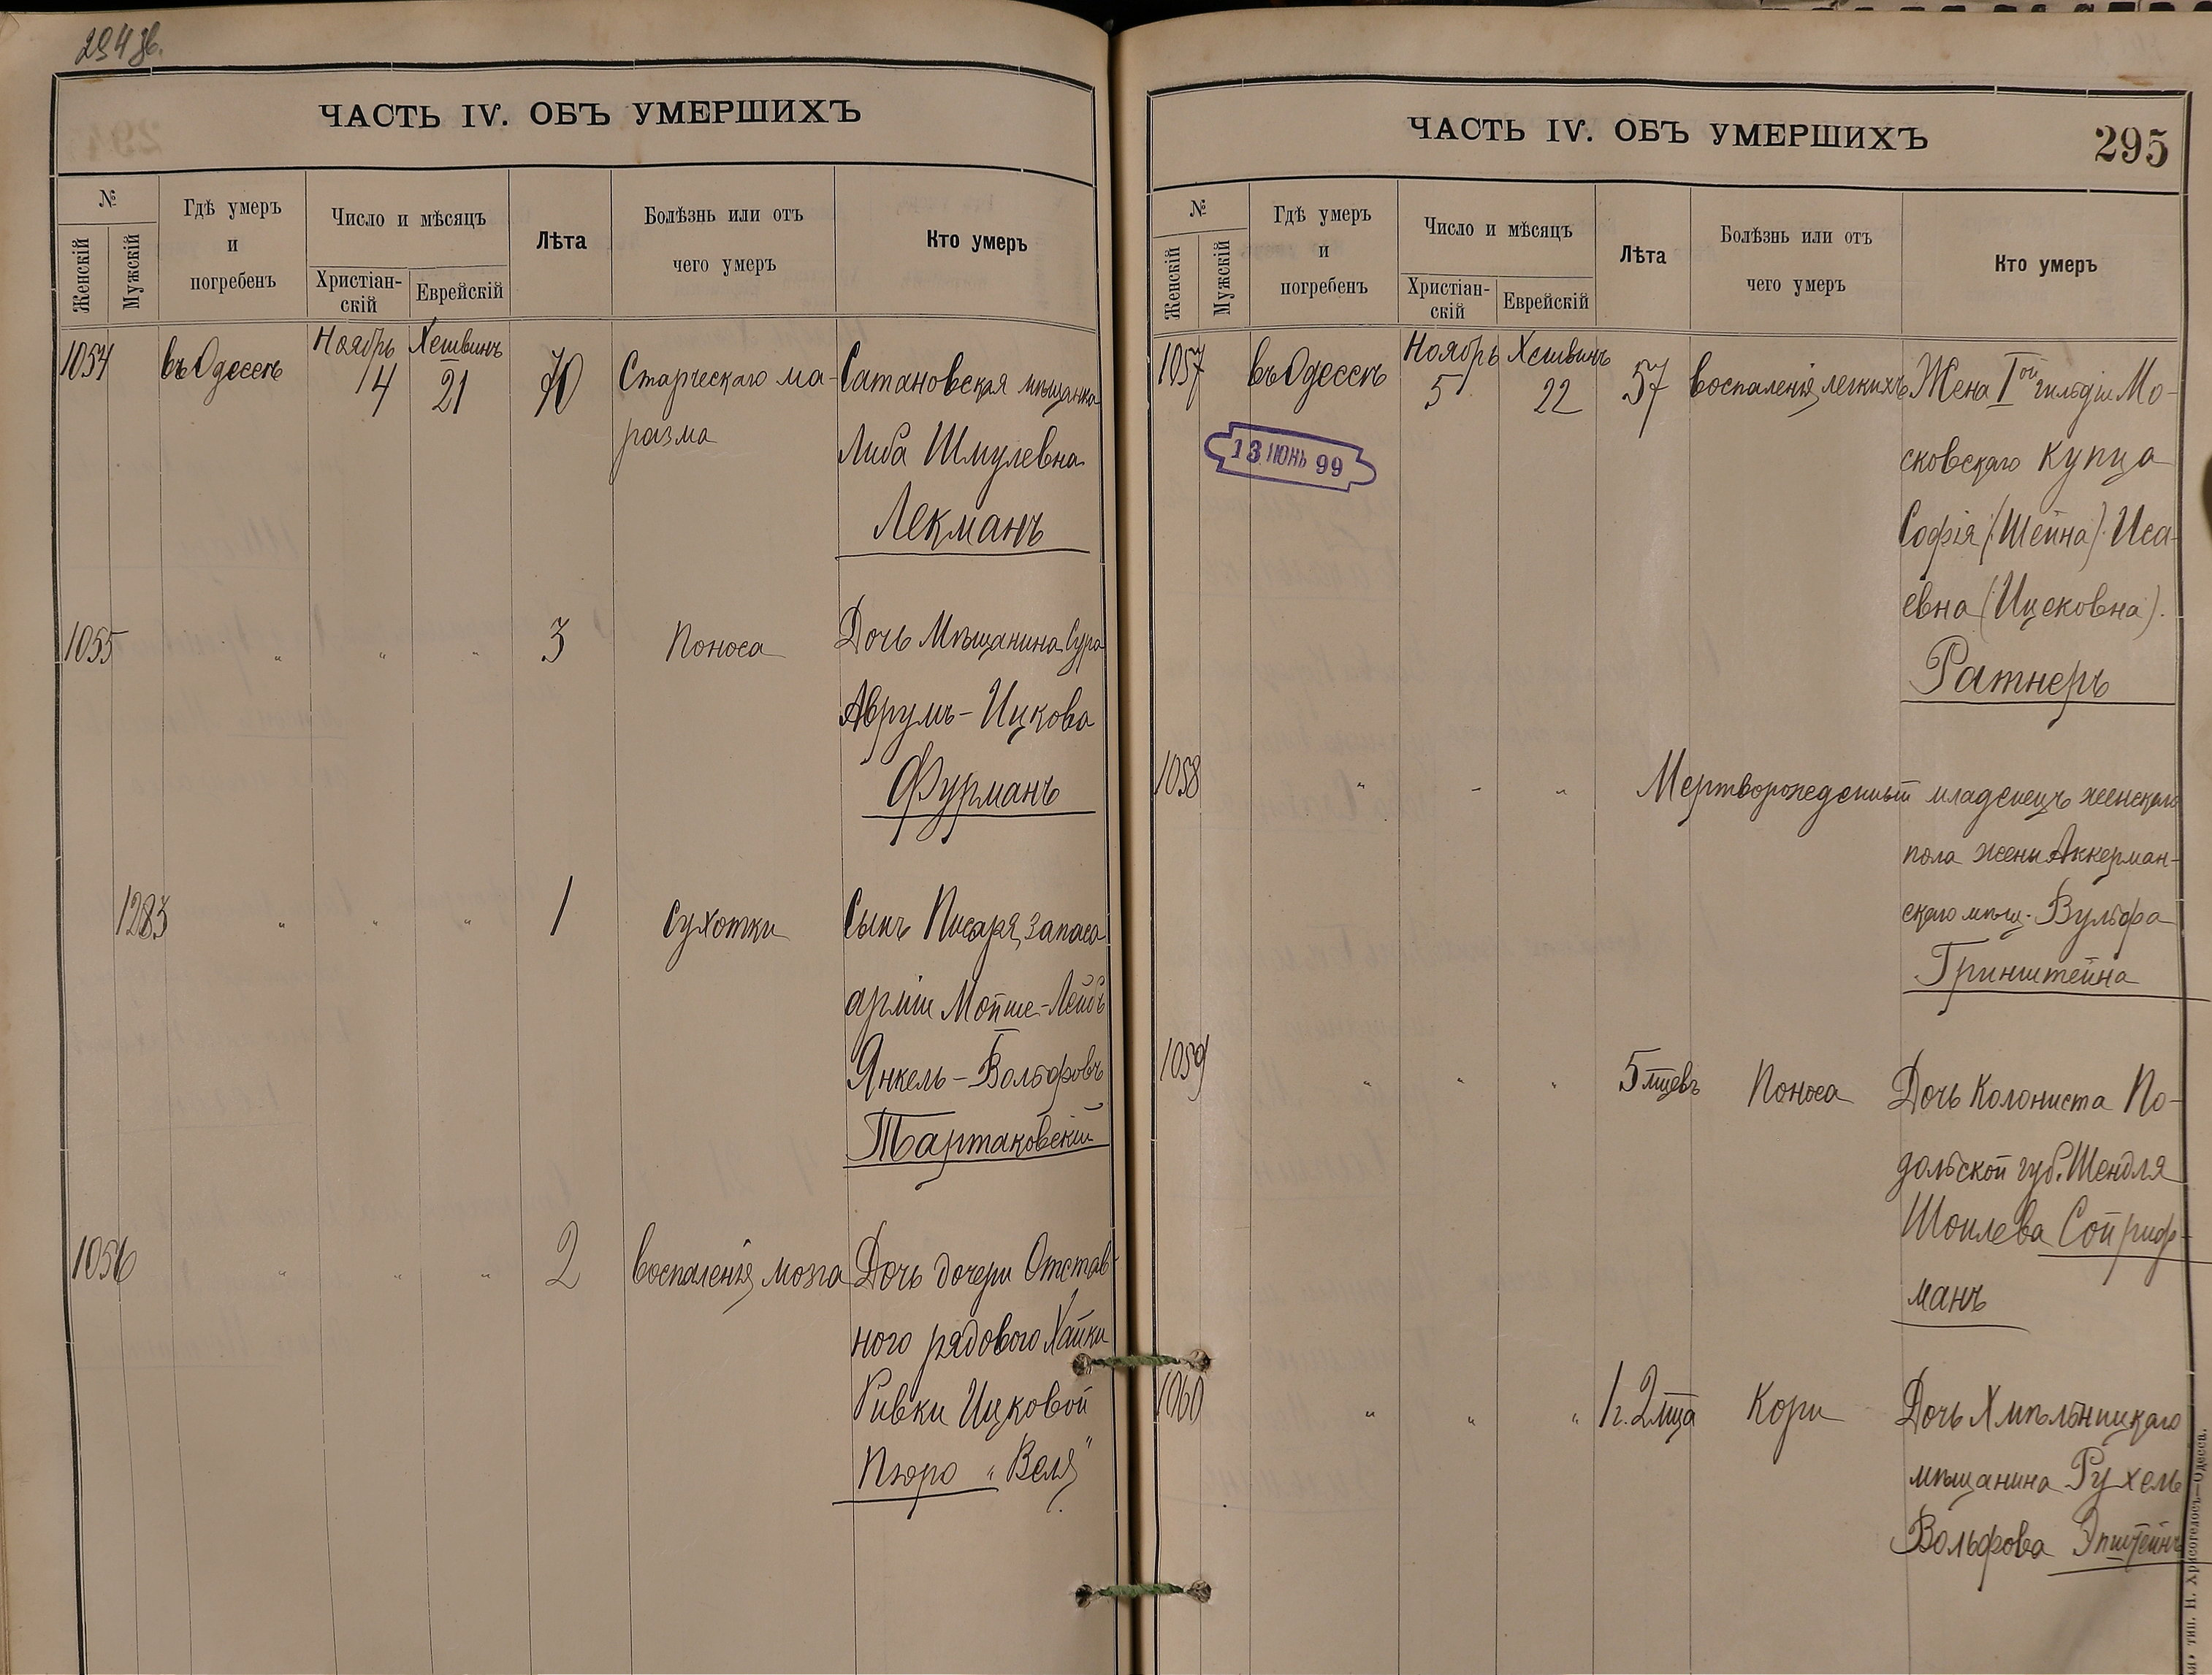 294 об.
ЧАСТЬ IV. ОБЪ УМЕРШИХЪ
№
Женскій
Мужскій
Гдѣ умеръ
и
погребенъ
Число и мѣсяцъ
Христіан-
скій
Еврейскій
Лѣта
Болѣзнь или отъ
чего умеръ
Кто умеръ
1054 въ Одессѣ Ноябрь 4 Хешвинъ 21 70 Старческаго ма- Сатановская мѣщанка
разма Либа Шмулевна
Лекманъ
1055 " " " 3 Поноса Дочь Мѣщанина Сура
Аврумъ-Ицкова
Фурманъ
1283 " " " 1 Сухотки Сынъ Писаря, запаса
арміи Мойше-Лейбъ
Янкель-Вольфовъ
Тартаковскій
1056 " " " 2 воспаленія мозга Дочь дочери Отстав-
ного рядового Хайки
Ривки Ицковой
Пюро "Веля"
ЧАСТЬ IV. ОБЪ УМЕРШИХЪ
295
№
Женскій
Мужскій
Гдѣ умеръ
и
погребенъ
Число и мѣсяцъ
Христіан-
скій
Еврейскій
Лѣта
Болѣзнь или отъ
чего умеръ
Кто умеръ
1057 въ Одессѣ Ноябрь 5 Хешвинъ 22 57 воспаленія легкихъ Жена I ой гильдіи Мо-
13 ІЮНЬ 99
сковскаго купца
Софія (Шейна) Иса-
евна (Ицековна).
Ратнеръ
1058 " - " Мертворожденный младенецъ женскаго
пола жены Аккерман-
скаго мѣщ. Вульфа
Гринштейна
1059 " " " 5 мцевъ Поноса Дочь Колониста По-
дольской губ. Шендля
Шоилева Сойриф-
манъ
1060 " " " 1 г. 2 мца Кори Дочь Хмѣльницкаго
мѣщанина Рухель
Вольфова Эпштейнъ
тип. Н. Хрисогелосъ—Одесса.